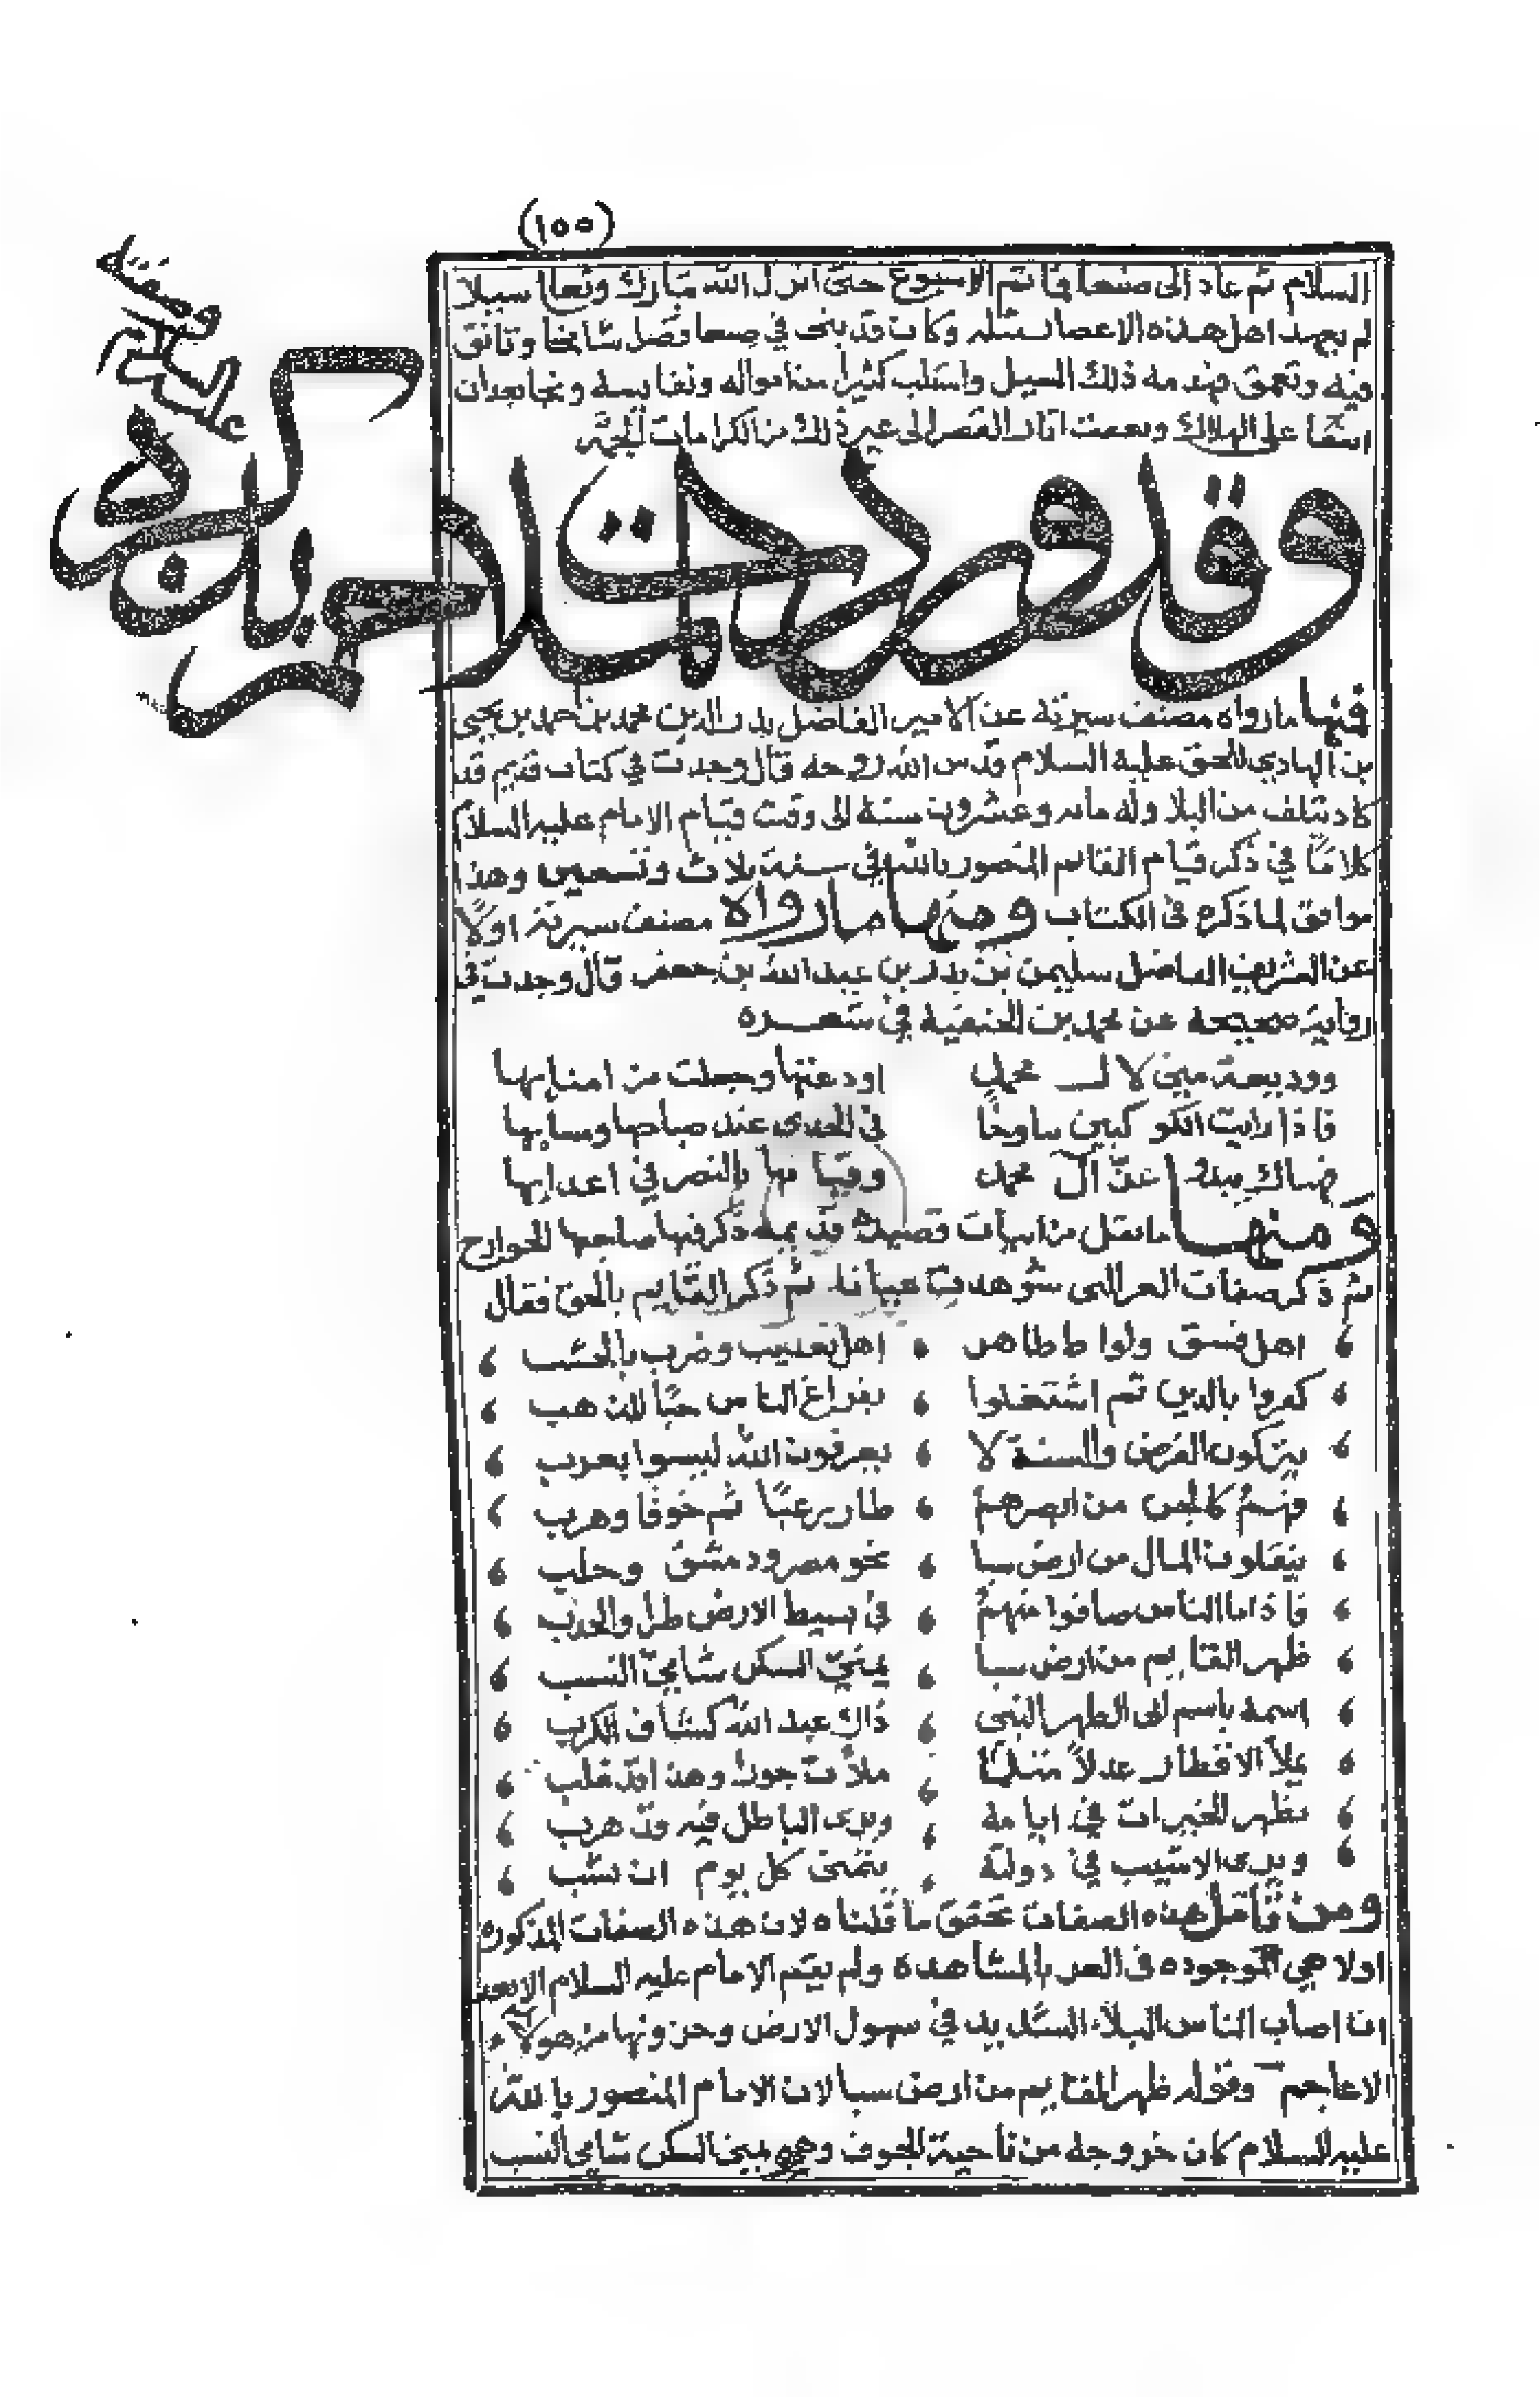 (١٥٥)
السلام ثم عاد الى صنعا فما تم الاسبوع حتى انزل الله تبارك وتعالى سيلا
لم يعهد اهل هذه الاعصار مثله وكان قد بنى في صنعا قصل شامخا وتانق
فيه وتعمق فهدمه ذلك السيل واستلب كثيرا من امواله ونفايسه ونجا بعد ان
اشفا على الهلاك وبعيت اثار القصر الى غير ذلك من الكرامات الجمه
وقد وردت
ملاحم بان ذكره
وصفته
عليه السلام
فمنها ما رواه مصنف سيرته عن الامير الفاضل بدر الدين محمد بن احمد بن يحيى
بن الهادي للحق عليه السلام قدس الله روحه قال وجدت في كتاب قديم قد
كاد يتلف من البلا وله مايه وعشرون سنة الى وقت قيام الامام عليه السلام
كلامًا في ذكر قيام القايم المنصور بالله في سنة ثلاث وتسعين وهذا
موافق لما ذكره في الكتاب ومنها ما رواه مصنف سيرته اولا
عن الشريف الفاضل سليمن بن بدر بن عبد الله بن جعفر قال وجدت في
رواية صحيحة عن محمد بن الحنفية في شعره
ووديعة مني لال محمد اودعتها وجعلت من امنايها
فاذا رايت الكوكبين تناوحا في الجدي عند صباحها ومسايها
فهناك يبدو عز آل محمد وقيامها بالنصر في اعدايها
ومنها ما نقل من ابيات قصيدة قديمه ذكر فيها ملاحما للخوارج
ثم ذكر صفات الغز التى شوهدت عيانا ثم ذكر القايم بالحق فقال
، اهل فسق ولواط ظاهر ، اهل تعذيب وضرب بالخشب ،
، كفروا بالدين ثم اشتغلوا ، بفراغ الناس حبًا للذهب ،
، يتركون الفرض والسنة لا ، يعرفون الله ليسوا بعرب ،
، فهم كالجن من ابصرهم ، طار رعبًا ثم خوفا وهرب ،
، ينقلون المال من ارض سبا ، نحو مصر ودمشق وحلب ،
، فاذا ما الناس ضاقوا منهم ، في بسيط الارض طرا والحدب ،
، ظهر القايم من ارض سبا ، يمني السكن شامي النسب ،
، اسمه باسم ابى الطهر النبى ، ذاك عبد الله كشاف الكرب ،
، يملأ الاقطار عدلاً مثلما ، ملأت جورا وهذا قد غلب ،
، تظهر الخيرات في ايامه ، ويرى الباطل فيه قد هرب ،
، ويرى الاشيب في دولته ، يتمنى كل يوم ان يشب ،
ومن تامل هذه الصفات تحقق ما قلناه لان هذه الصفات المذكوره
اولا هي الموجوده فى الغز بالمشاهدة ولم يقم الامام عليه السلام الا بعد
ان اصاب الناس البلاء الشديد في سهول الارض وحزونها من هولاء
الاعاجم وقوله ظهر القايم من ارض سبا لان الامام المنصور بالله
عليه السلام كان خروجه من ناحية الجوف وهو يمني السكن شامي النسب